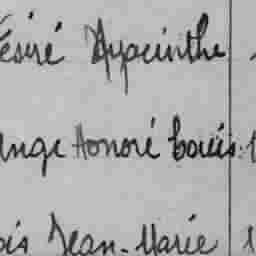 ésiré Hyacinthe
Ange Honoré Louis
ois Jean-Marie